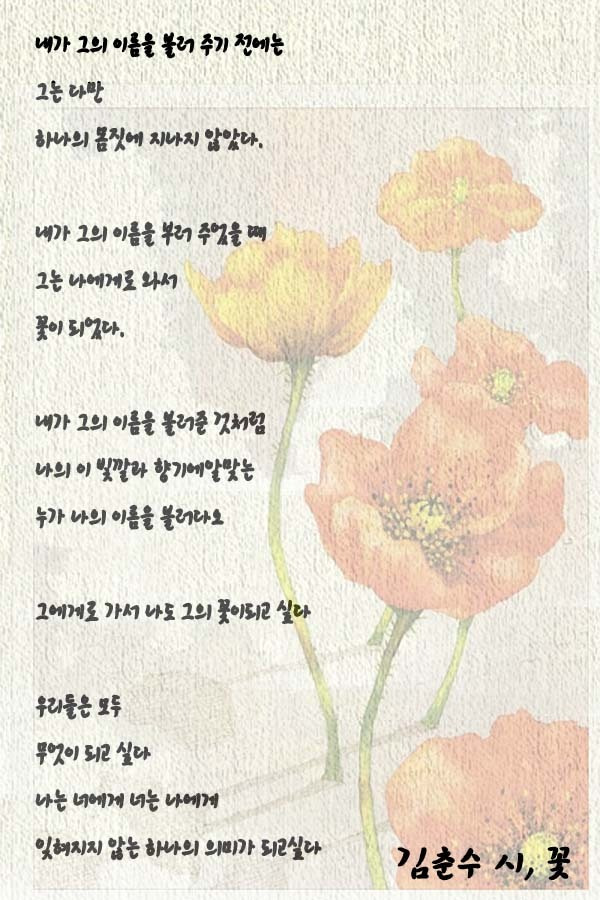 내가 그의 이름을 불러 주기 전에는
그는 다만
하나의 몸짓에 지나지 않았다.
내가 그의 이름을 부러 주었을 때
그는 나에게로 와서
꽃이 되었다.
내가 그의 이름을 불러준 것처럼
나의 이 빛깔라 향기에알맞는
누가 나의 이름을 불러다오
그에게로 가서 나도 그의 꽃이되고 싶다
우리들은 모두
무엇이 되고 싶다
나는 너에게 너는 나에게
잊혀지지 않는 하나의 의미가 되고싶다
김춘수 시, 꽃